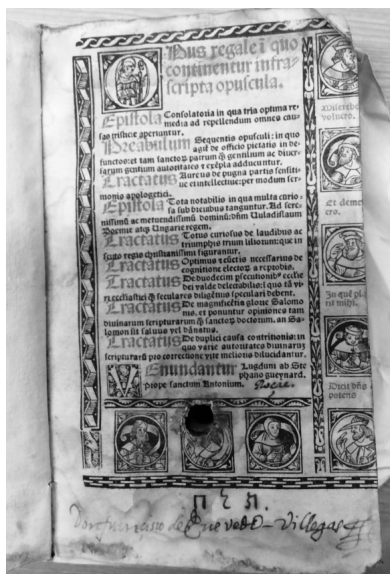 OPus regale ī quo
continentur infra-
scripta opuscula.
Epistola Consolatoria in qua tria optima re-
media ad repellendum omnes cau-
sas tristicie aperiuntur.
Vocabulum Sequentis opusculi: in quo
agit̄ de officio pietatis in de-
functos: et tam sanctoꝝ patrum ꝙ gentilium ac diuer-
sarum gentium autoritates ⁊ exēpla adducuntur.
Tractatus Aureus de pugna partis sensiti-
ue et intellectiue: per modum ser-
monis apologetici.
Epistola Tota notabilis in qua multa curio-
sa sub breuibus tanguntur. Ad sere-
nissimū ac metuendissimū dominū: dn̄m Uladislaum
Boemie atꝙ Ungarie regem.
Tractatus Totus curiosus de laudibus ac
triumphis trium liliorum: que in
scuto regis christianissimi figurantur.
Tractatus Optimus ⁊ cūctis necessarius de
cognitione electoꝝ ⁊ reprobis.
Tractatus De duodecim ꝑsecutionibꝰ ecclesie
dei valde delectabilis: ī quo tā vi-
ri ecclesiastici ꝙ seculares diligētius speculari debent.
Tractatus De magnificētia glorie Salomo
nis. et ponuntur opiniones tam
diuinarum scripturarum ꝙ sanctoꝝ doctorum. an Sa-
lomon sit saluus vel dānatus.
Tractatus De duplici causa contritionis: in
quo varie autoritates diuinarū
scripturarū pro correctione vite melioris dilucidantur.
VEnundantur Lugduni ab Ste
phano gueynard.
prope sanctum Antonium.
voluero.
cro.
In quē pla
cit mihi.
Dicit dn̄s
Don francisco de Quevedo – Villegas